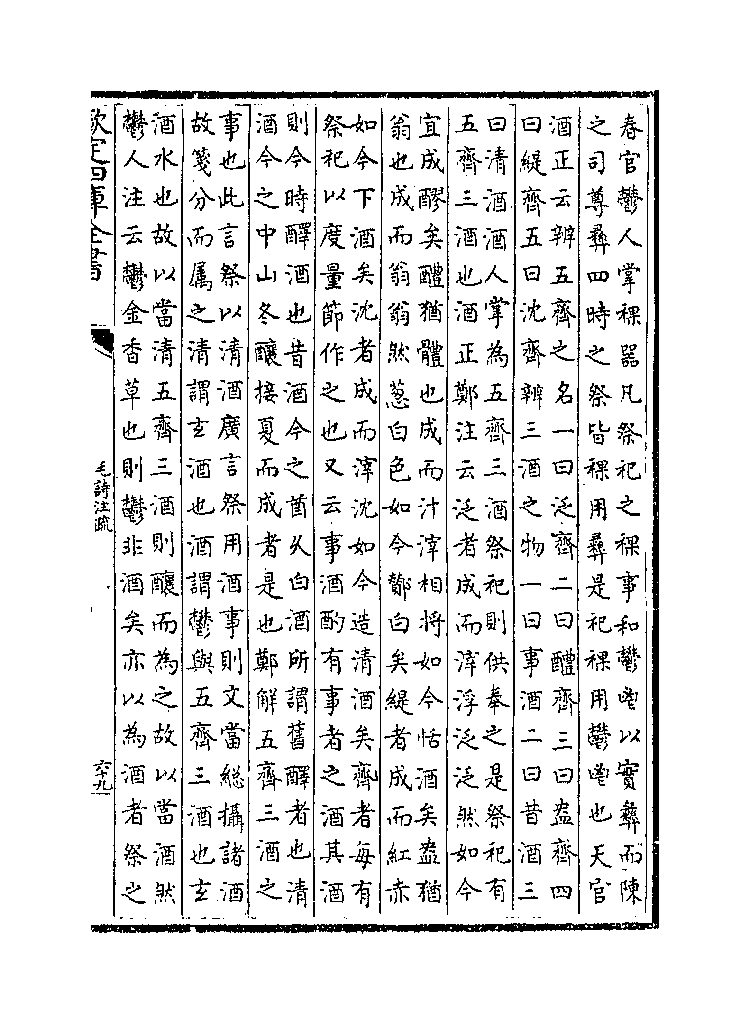 春官鬱人掌祼器凡祭祀之祼事和鬱鬯以實彝而陳
之司尊彝四時之祭皆祼用彝是祀祼用鬱鬯也天官
酒正云辨五齊之名一曰泛齊二曰醴齊三曰盎齊四
曰緹齊五曰沈齊辨三酒之物一曰事酒二曰昔酒三
曰清酒酒人掌為五齊三酒祭祀則供奉之是祭祀有
五齊三酒也酒正鄭注云泛者成而滓浮泛泛然如今
宜成醪矣醴猶體也成而汁滓相將如今恬酒矣盎猶
翁也成而翁翁然葱白色如今酇白矣緹者成而紅赤
如今下酒矣沈者成而滓沈如今造清酒矣齊者每有
祭祀以度量節作之也又云事酒酌有事者之酒其酒
則今時醳酒也昔酒今之酋久白酒所謂舊醳者也清
酒今之中山冬釀接夏而成者是也鄭解五齊三酒之
事也此言祭以清酒廣言祭用酒事則文當総攝諸酒
故箋分而属之清謂玄酒也酒謂鬱與五齊三酒也玄
酒水也故以當清五齊三酒則釀而為之故以當酒然
鬱人注云鬱金香草也則鬱非酒矣亦以為酒者祭之
欽定四庫全書
毛詩注疏
六十九